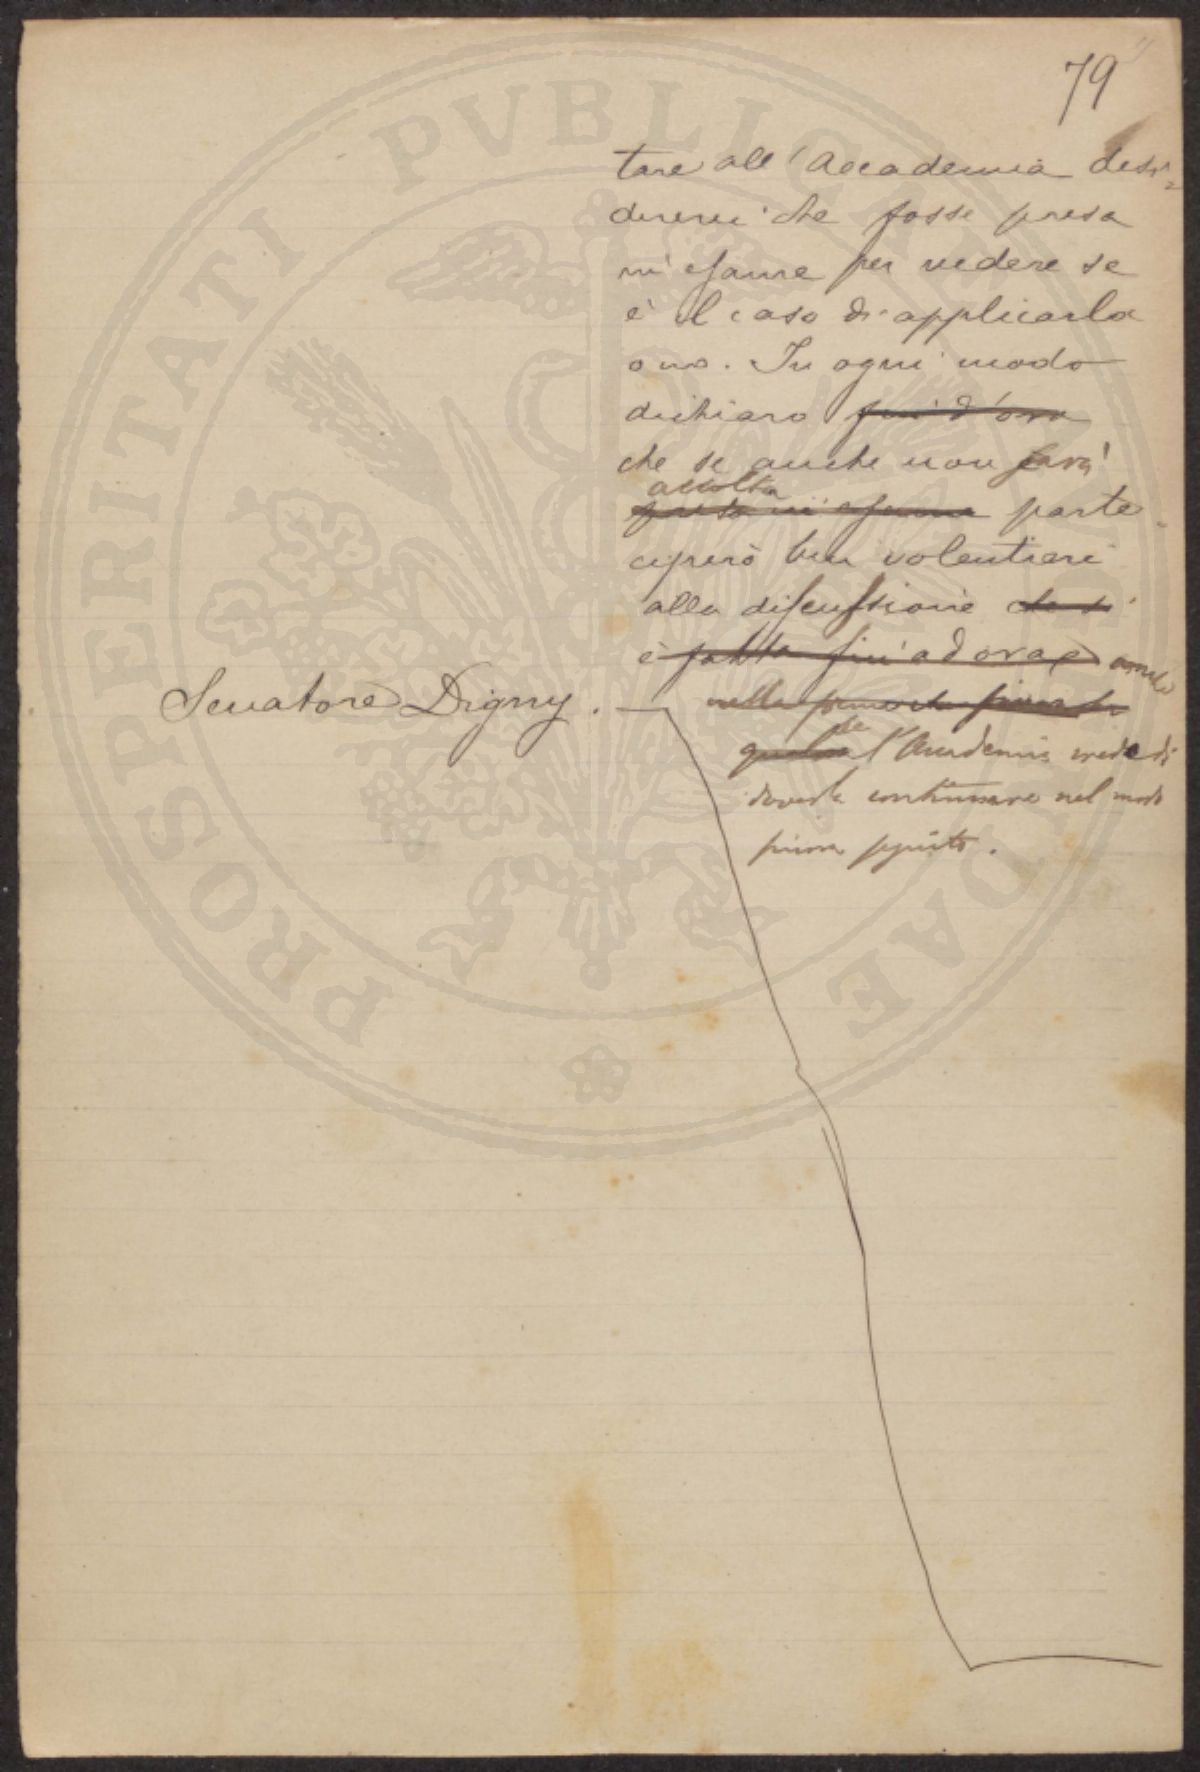 79
tare all'Accademia desi=
dererei che fosse presa
in esame per vedere se
è il caso di applicarla
o no. In ogni modo
dichiaro fin d'ora
che se anche non sarà
accolta
presa in esame parte-
ciperò ben volentieri
alla discussione che si
è fatta fin ad ora e
nella forma che
Senatore Digny.
se
qualora l'Accademia crede di
doverla continuare nel modo
prima seguito.
PROSPERITATI PVBLICAE AVGENDAE